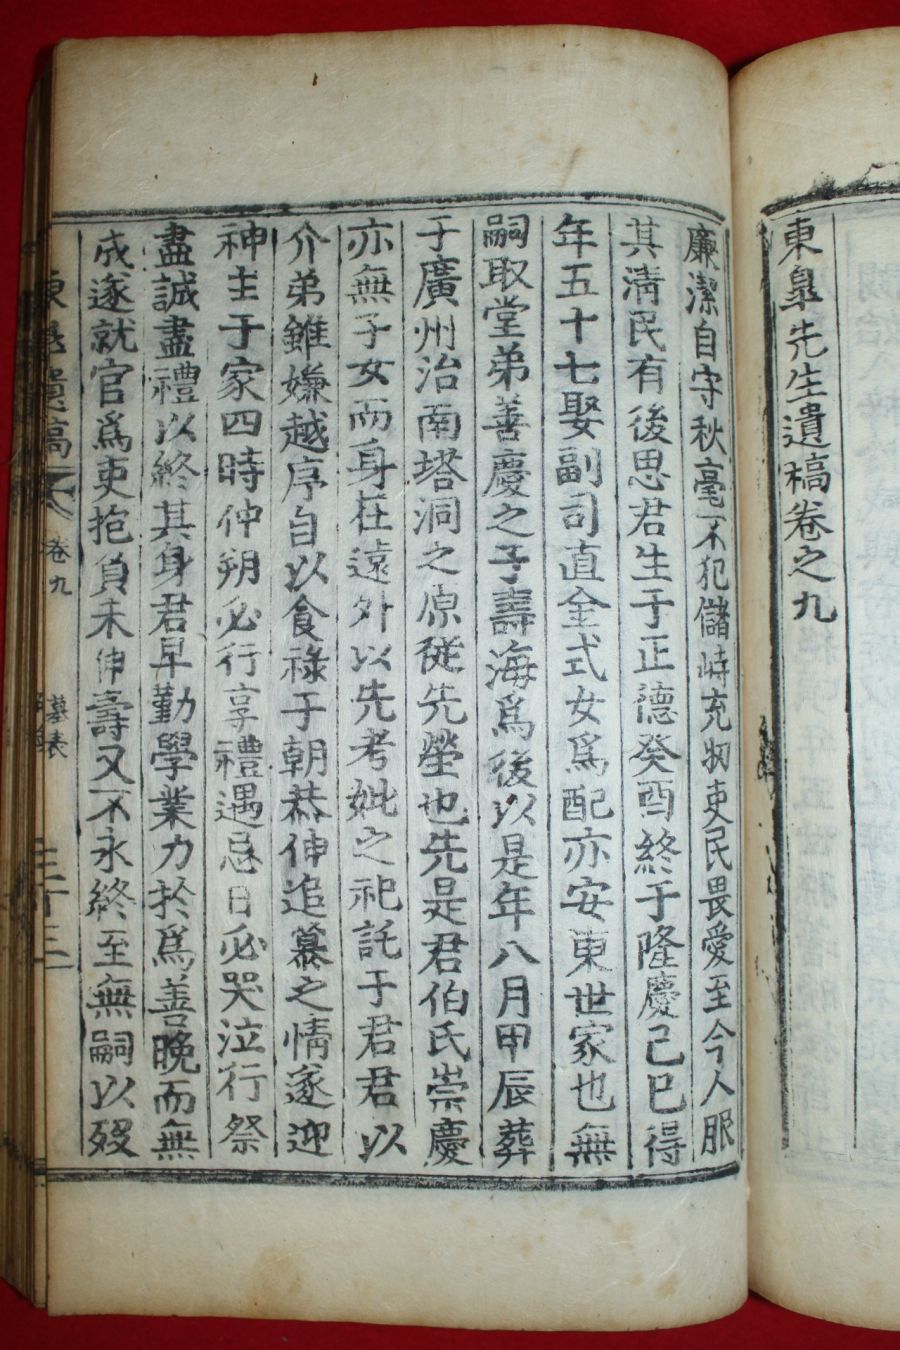 東皐先生遺稿卷之九
廉潔自守秋毫不犯儲峙充牣吏民畏愛至今人服
其淸民有後思君生于正德癸酉終于隆慶己巳得
年五十七娶副司直金式女爲配亦安東世家也無
嗣取堂弟善慶之子壽海爲後以是年八月甲辰葬
于廣州治南塔洞之原從先塋也先是君伯氏崇慶
亦無子女而身在遠外以先考妣之祀託于君君以
介弟雖嫌越序自以食祿于朝恭伸追慕之情遂迎
神主于家四時仲朔必行享禮遇忌日必哭泣行祭
盡誠盡禮以終其身君早勤學業力於爲善晩而無
成遂就官爲吏抱負未伸壽又不永終至無嗣以歿
東皐遺稿 卷九 墓表